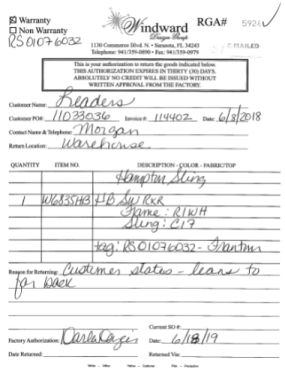 ☒ Warranty
☐ Non Warranty
RS01076032
Windward
Design Group
RGA# 5926
1130 Commerce Blvd. N. • Sarasota, FL 34243
Telephone: 941/359-0890 • Fax: 941/359-0979
MAILED
This is your authorization to return the goods indicated below.
THIS AUTHORIZATION EXPIRES IN THIRTY (30) DAYS.
ABSOLUTELY NO CREDIT WILL BE ISSUED WITHOUT
WRITTEN APPROVAL FROM THE FACTORY.
Customer Name: Leaders
Customer PO# 11033036 Invoice # 114402 Date: 6/8/2018
Contact Name & Telephone: Morgan
Return Location: Warehouse
QUANTITY ITEM NO. DESCRIPTION - COLOR - FABRIC/TOP
Hampton Sling
1 W6835HB HB SW RKR
Frame: RIWH
Sling: C17
tag: RS01076032 -
Reason for Returning: Customer states - leans to
far back
Current SO #:
Factory Authorization: Date: 6/18/19
Date Returned: Returned Via:
White - Office Yellow - Customer Pink - Production